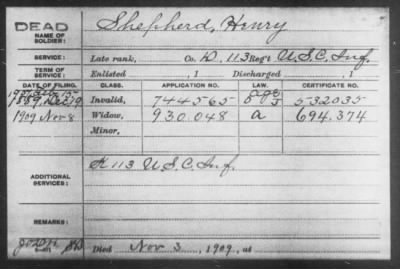 DEAD
NAME OF SOLDIER: Shepherd, Henry
SERVICE: Late rank, Co. K, 113 Reg't U.S.C. Inf.
TERM OF SERVICE: Enlisted , 1 Discharged , 1
DATE OF FILING. CLASS. APPLICATION NO. LAW. CERTIFICATE NO.
1889, Dec 29 Invalid, 744565 532035
1909 Nov 8 Widow, 930.048 a 694.374
Minor,
ADDITIONAL SERVICES: K 113 U.S.C. Inf.
REMARKS:
Died Nov 3, 1909, at